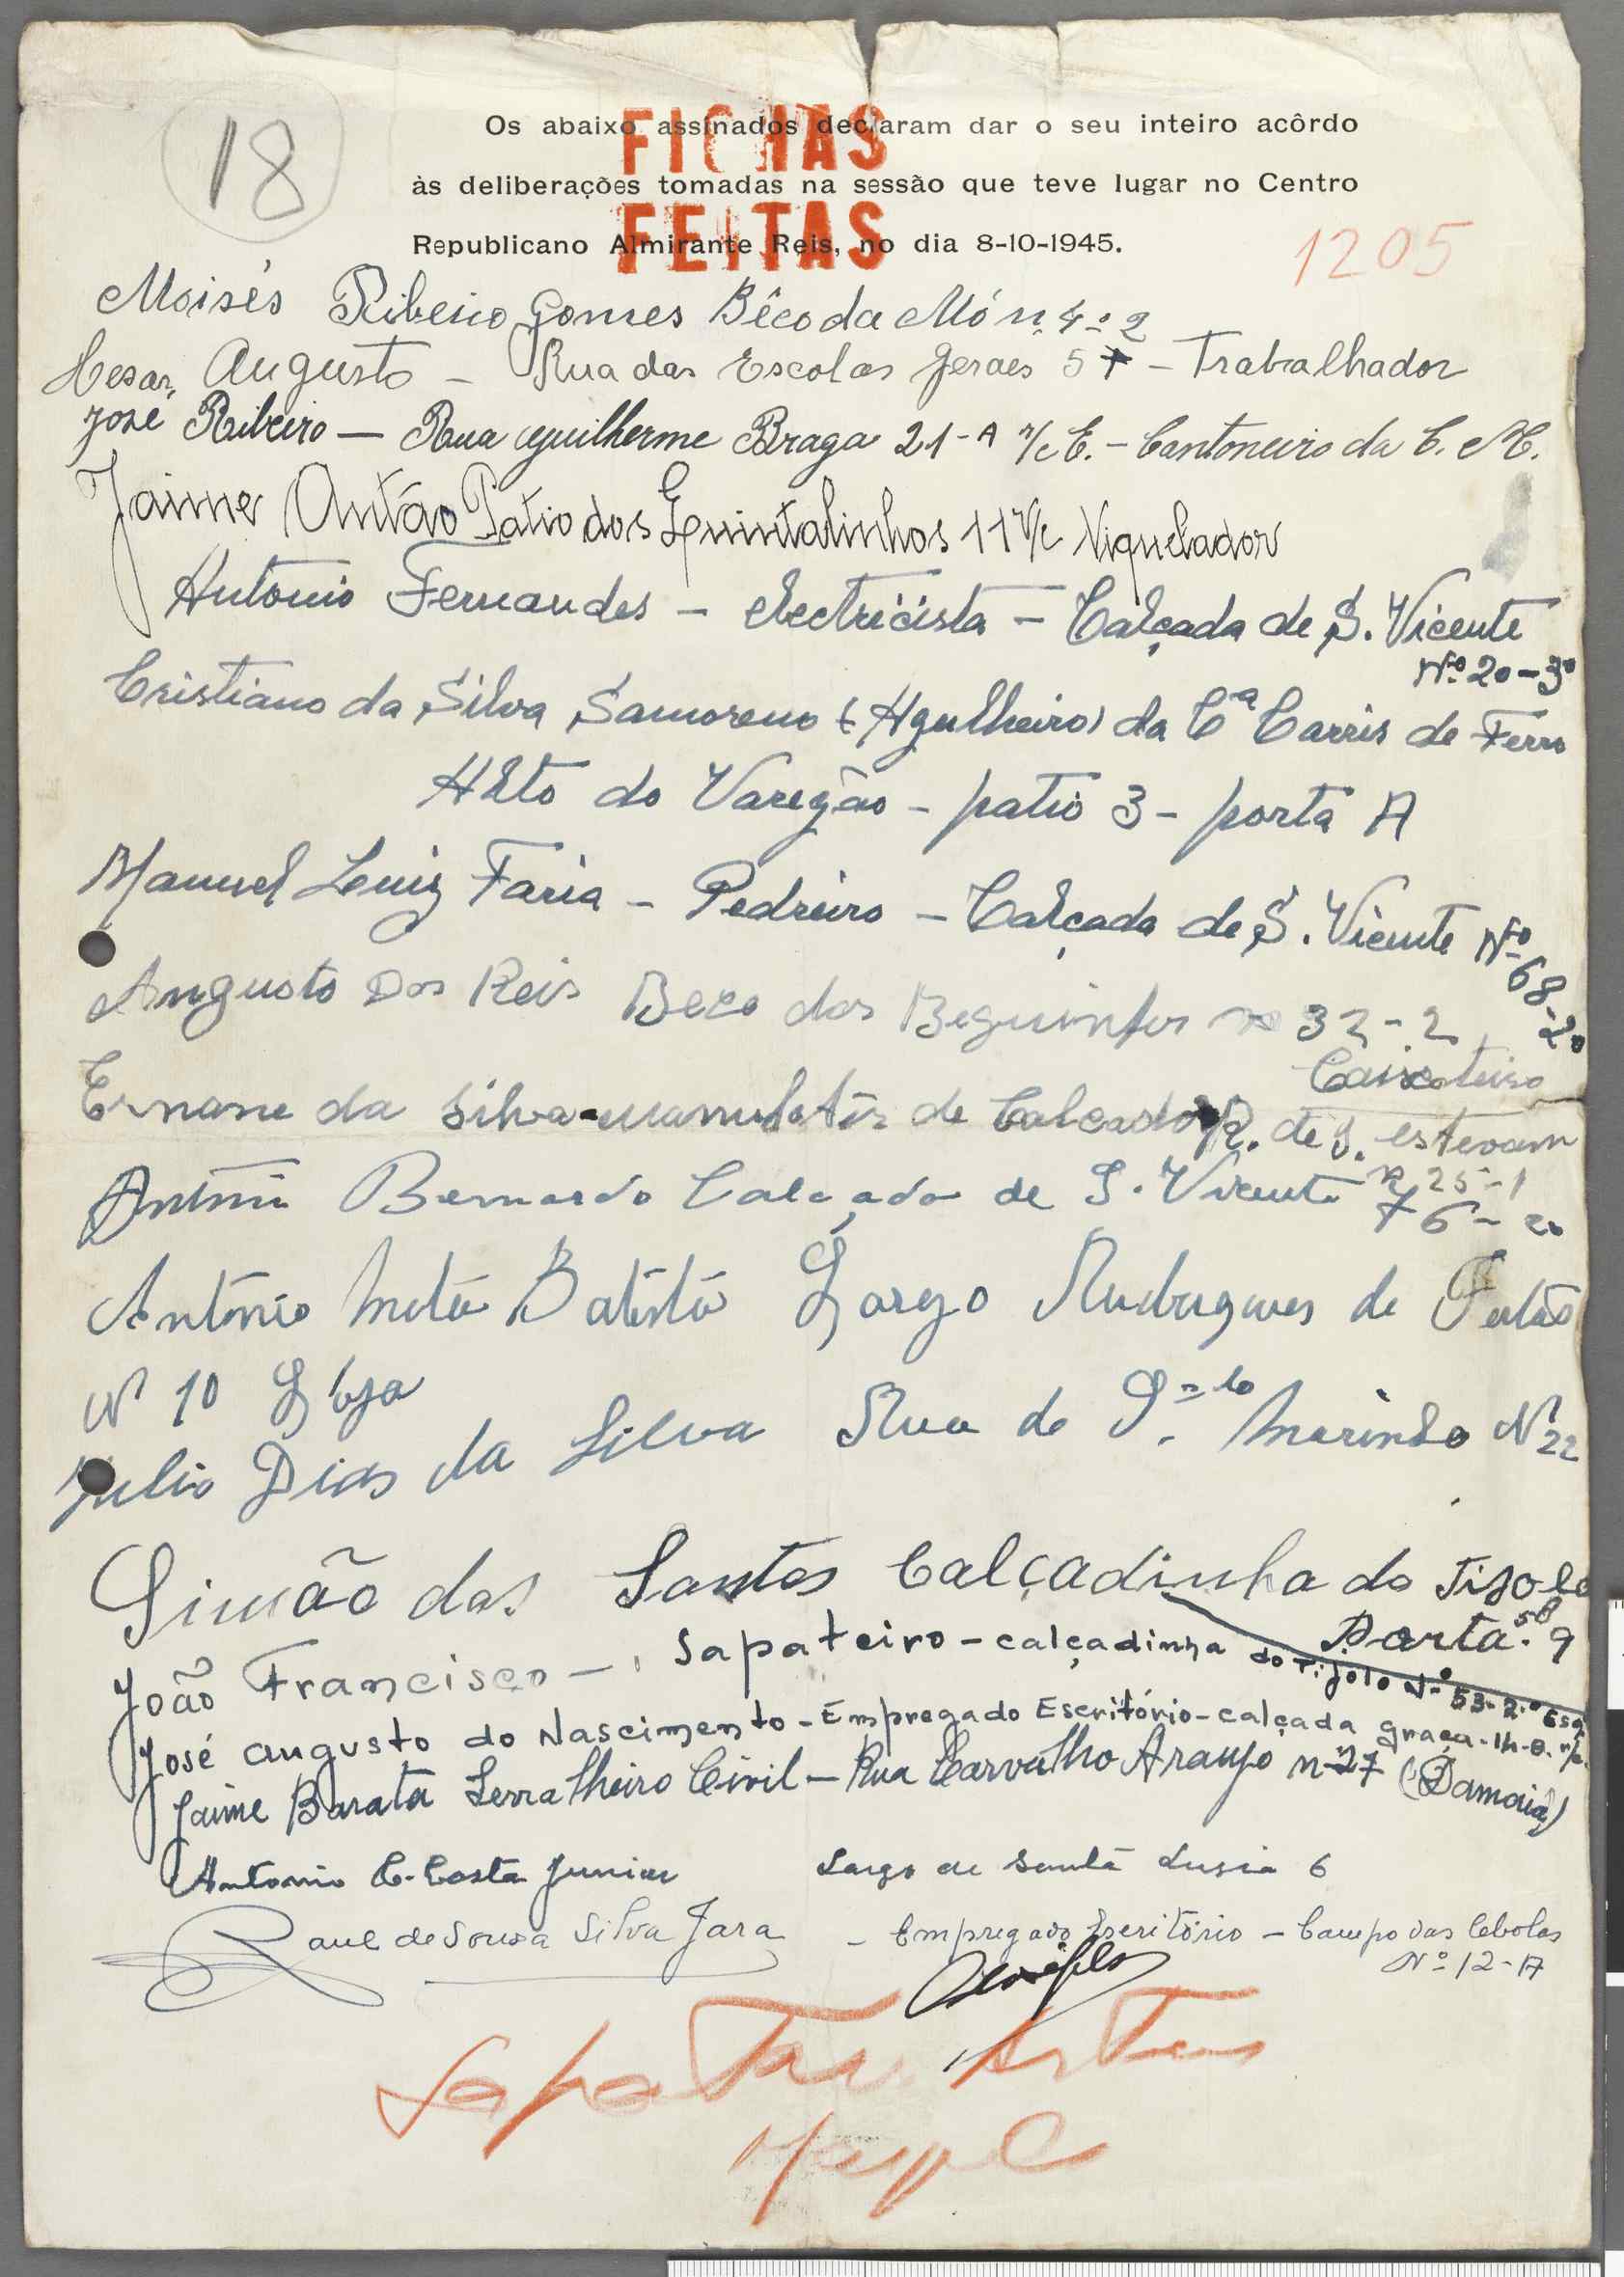 18
Os abaixo assinados declaram dar o seu inteiro acôrdo
FICHAS
às deliberações tomadas na sessão que teve lugar no Centro
FEITAS
Republicano Almirante Reis, no dia 8-10-1945.
1205
Moisés Ribeiro Gomes Bêco da Mó n. 4-2
Cesar Augusto - Rua das Escolas Geraes 57 - Trabalhador
José Ribeiro - Rua Guilherme Braga 21-A r/c E. - Cantoneiro da C. M.
Jaime Antão Patio dos Quintalinhos 11 r/c Niquelador
Antonio Fernandes - electricista - Calçada de S. Vicente
Nº 20-3º
Cristiano da Silva Samoreno (Agulheiro) da Cª Carris de Ferro
Alto do Varejão - patio 3 - porta A
Manuel Luiz Faria - Pedreiro - Calçada de S. Vicente Nº
68-2º
Augusto Dos Reis Beco dos 32-2
Caixoteiro
Ernane da Silva - manufator de Calçado R. de S. estevam
n 25-1
Bernardo Calçada de S. Vicente 76-2º
António Batista Largo Rudrigues de Freitas
Nº 10 Loja
Julio Dias da Silva Rua de Marinha Nº 22
Simão dos Santos Calçadinha do Tijolo
Porta 9
João Francisco - Sapateiro - calçadinha do Tijolo Nº 53-2º Esq
José Augusto do Nascimento - Empregado Escritório - calçada graça - 14-B. r/c.
Jaime Barata Serralheiro Civil - Rua Carvalho Araujo n-27 (Damaia)
Antonio C. Costa Junior Largo de Santa Lusia 6
Raul de Sousa Silva Jara - Empregado Escritório - Campo das Cebolas
Nº 12-A